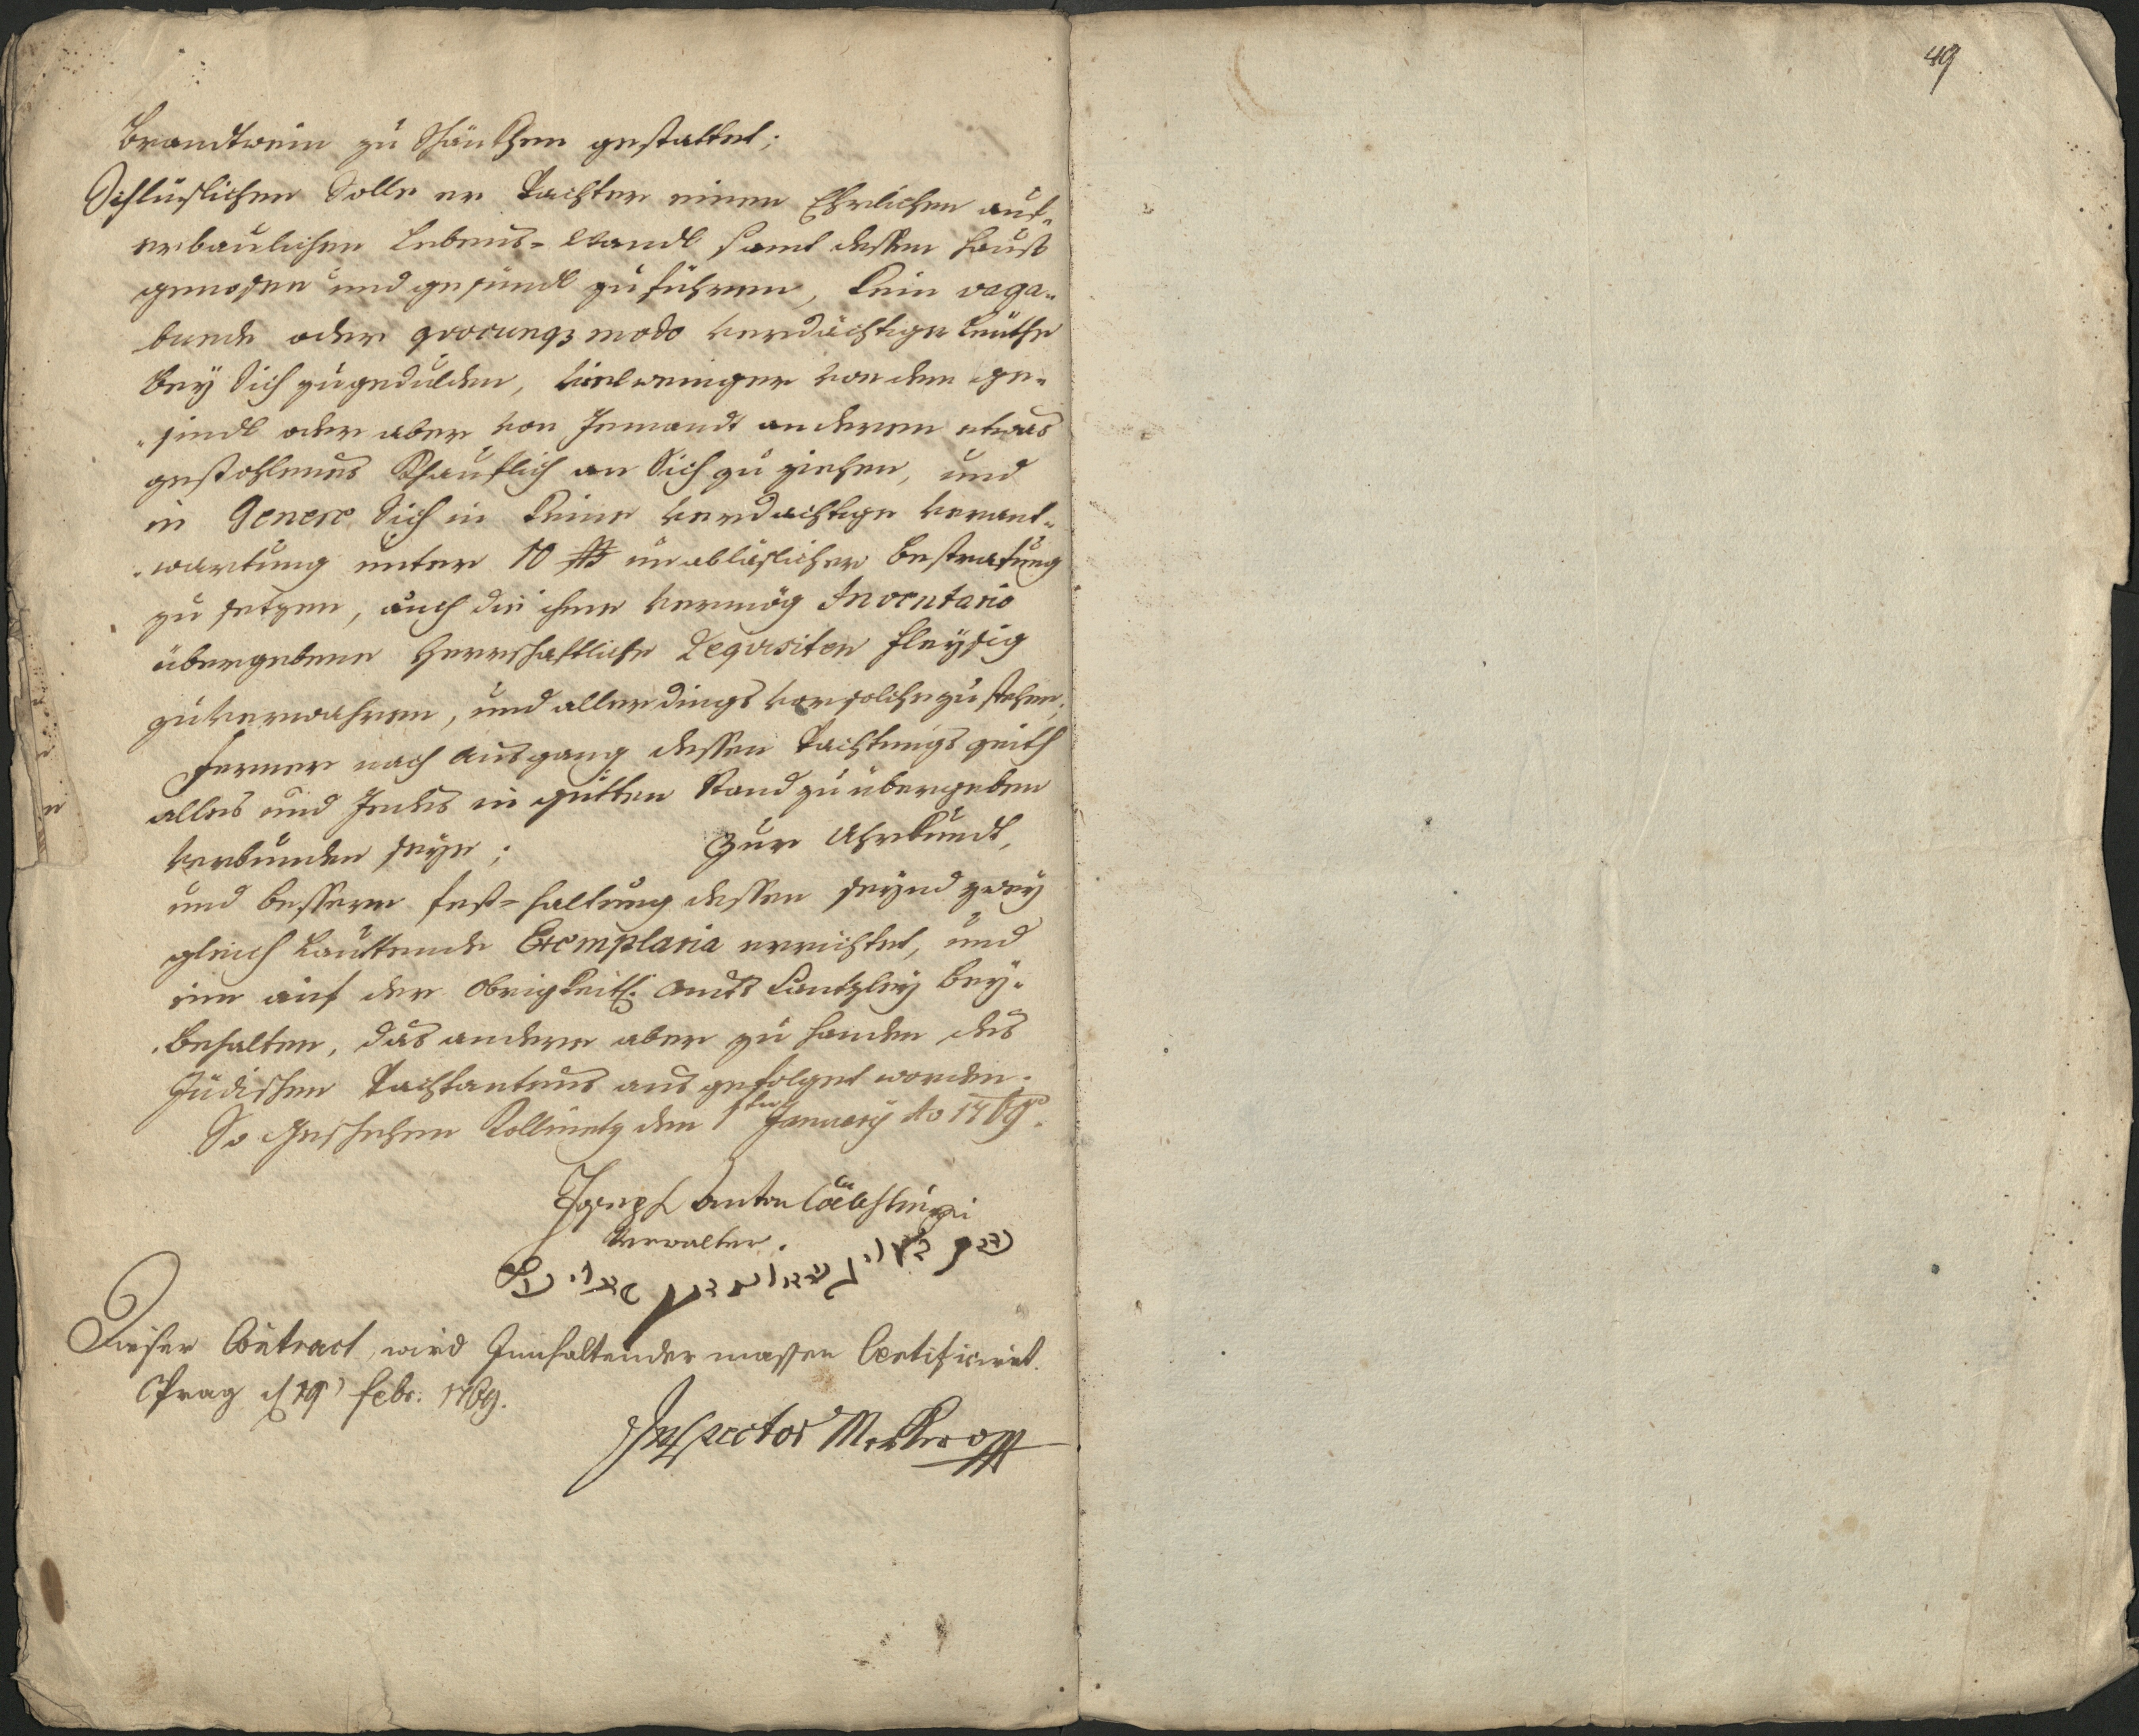 49
Brandtwein zu Schäncken gestattet;
Schlüslichen Solle er Pachter einen Ehrlichen auf-
erbaulichen Lebens-Wandl samt dessen Hauß
genossen und gesündl zu führen, kein vaga-
bunde oder qvocunq3 modo verdächtige Leüthe
bey Sich zugedulden, vielweniger von dem ge-
sindl oder aber von Jemandt anderem etwas
gestohlenes Khaüflich an Sich zu ziehen, und
in Genere Sich in keine verdachtige verant-
wartung unter 10 unabläslicher bestrafung
zu setzen, auch die ihme vermög Inventario
übergebene Herrschafftliche Reqvisiten fleysig
zu verwahren, und allerdings vor solche zu stehen,
Ferner nach ausgang dessen Pachtungs zeith
alles und Jedes in gutten Stand zu übergeben
verbunden seye; Zur Uhrkundt,
und bessere fest-haltung dessen seynd zwey
gleich Lauttende Exemplaria errichtet, und
ein auf der Obrigkeitl. Ambts Cantzley bey-
behalten, das andere aber zu handen des
Jüdischen Pachtantens ausgefolget worden.
So Geschehen den 1ten January Ao 1769.
Joseph Anton
Verwalter.
Dieser Contract wird Innhaltender massen Certificiret.
Prag d 19 Febr. 1769.
Inspector